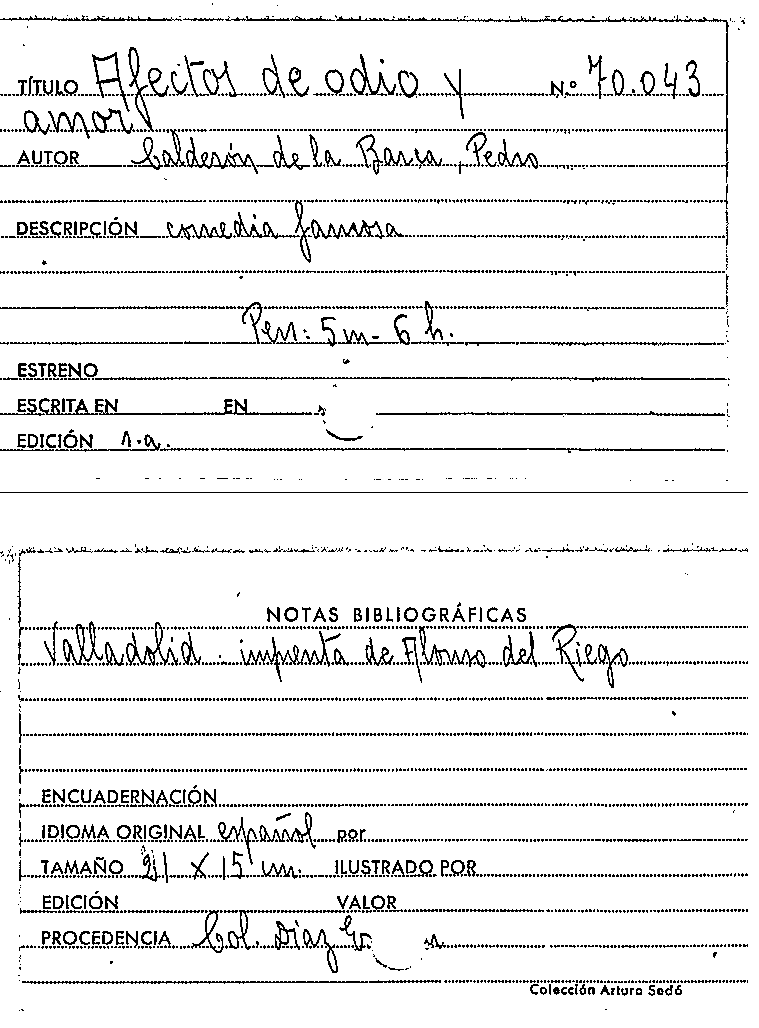 TÍTULO Afectos de odio y N.º 70.043
amor
AUTOR Calderón de la Barca, Pedro
DESCRIPCIÓN comedia famosa
Pers: 5 m - 6 h.
ESTRENO
ESCRITA EN EN
EDICIÓN s.a.
NOTAS BIBLIOGRÁFICAS
Valladolid. imprenta de Alonso del Riego
ENCUADERNACIÓN
IDIOMA ORIGINAL español por
TAMAÑO 21 X 15 cm. ILUSTRADO POR
EDICIÓN VALOR
PROCEDENCIA Col. Díaz
Colección Arturo Sedó